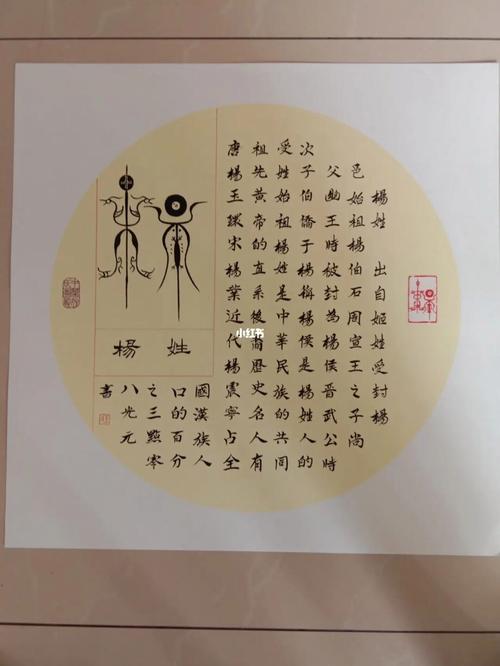 楊姓 出自姬姓受封楊
邑始祖楊伯石周宣王之子尚
父幽王時被封為楊侯晉武公時
次子伯僑于楊稱楊侯是楊姓人的
受姓始祖楊姓是中華民族的共同
祖先黃帝的直系後裔曆史名人有
唐楊玉環宋楊業近代楊震寧占全
楊姓
國漢族人
口的百分
之三點零
八光元
書
小红书